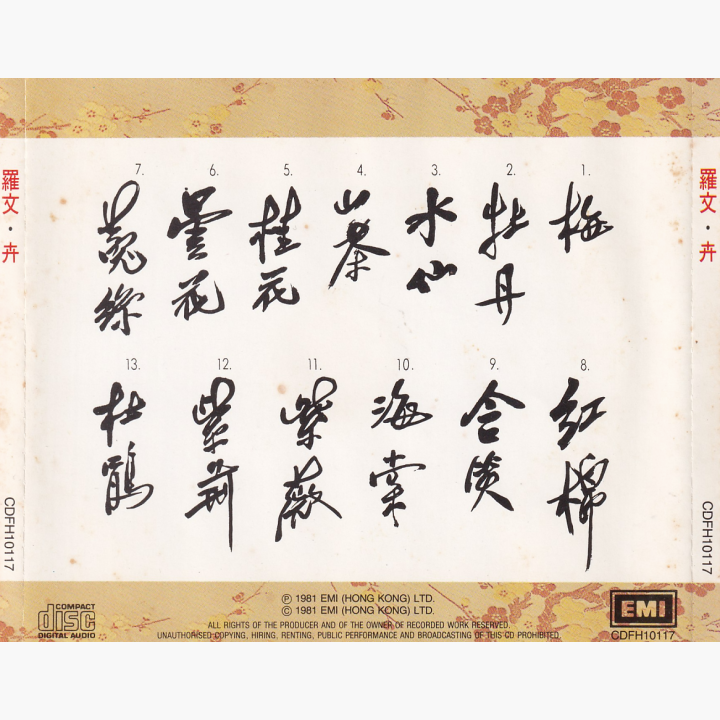 羅文・卉
1.
梅
2.
牡丹
3.
水仙
4.
山茶
5.
桂花
6.
曇花
7.
菟絲
8.
紅棉
9.
含笑
10.
海棠
11.
紫薇
12.
紫荊
13.
杜鵑
羅文・卉
CDFH10117
CDFH10117
COMPACT
disc
DIGITAL AUDIO
Ⓟ 1981 EMI (HONG KONG) LTD.
© 1981 EMI (HONG KONG) LTD.
ALL RIGHTS OF THE PRODUCER AND OF THE OWNER OF RECORDED WORK RESERVED.
UNAUTHORISED COPYING, HIRING, RENTING, PUBLIC PERFORMANCE AND BROADCASTING OF THIS CD PROHIBITED.
EMI
CDFH10117